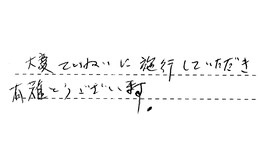 大変ていねいに施行していただき
有難とうございます。